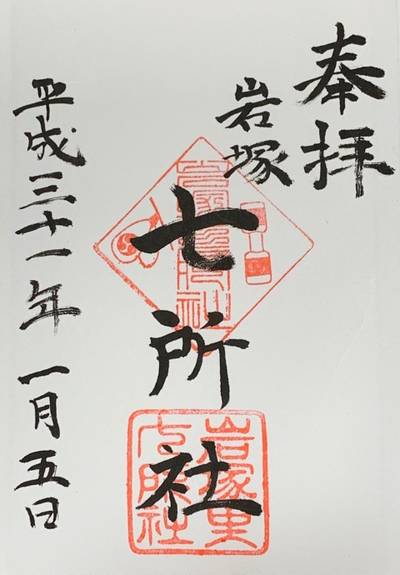 奉拝
岩塚
七所社
平成三十一年一月五日
岩塚里
七所社